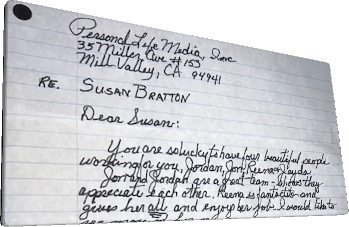 Personal Life Media, Inc
35 Miller Ave #153
Mill Valley, CA 94941
RE. SUSAN BRATTON
Dear Susan:
You are so lucky to have four beautiful people
working for you, Jordan, Jon, Reena &
Jon and Jordan are a great team - shows they
appreciate each other. Reena is fantastic - and
gives her all and enjoys her job. I would like to